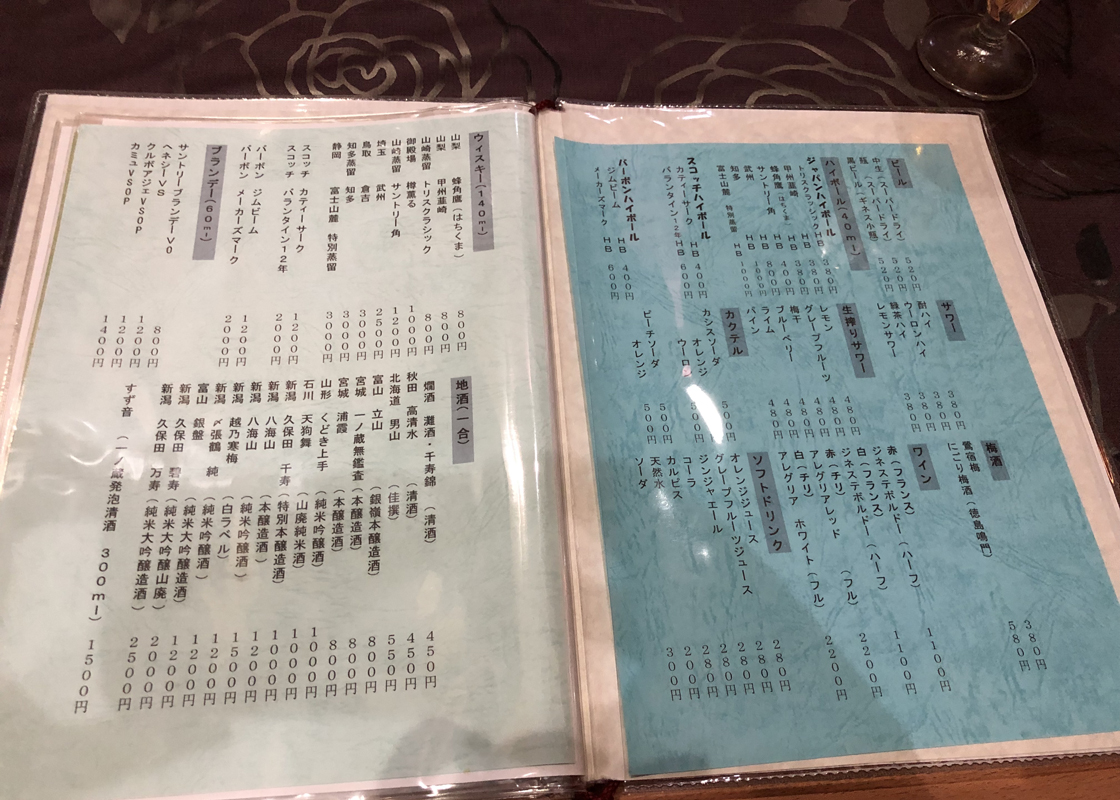 ビール
中生(スーパードライ) 520円
瓶 (スーパードライ) 520円
黒ビール(ギネス小瓶) 520円
ハイボール(40ml)
ジャパンハイボール
トリスクラシックHB 380円
甲州韮崎 HB 380円
蜂角鷹(はちくま)HB 400円
サントリー角 HB 800円
武州 HB 1000円
知多 HB 1000円
富士山麓 特別蒸留
スコッチハイボール
カティーサーク HB 400円
バランタイン12年HB 600円
バーボンハイボール
ジムビーム HB 400円
メーカーズマーク HB 600円
サワー
酎ハイ 380円
ウーロンハイ 380円
緑茶ハイ 380円
レモンサワー 380円
生搾りサワー
レモン 480円
グレープフルーツ 480円
梅干 480円
ブルーベリー 480円
ライム 480円
パイン
カクテル
カシスソーダ 500円
オレンジ
ウーロン 500円
ピーチソーダ 500円
オレンジ 500円
梅酒
鶯宿梅 380円
にごり梅酒(徳島鳴門) 580円
ワイン
赤(フランス)
ジネステボルドー(ハーフ) 1100円
白(フランス)
ジネステボルドー(ハーフ) 1100円
赤(チリ)
アレグリアレッド (フル) 2200円
白(チリ)
アレグリア ホワイト(フル) 2200円
ソフトドリンク
オレンジジュース 280円
グレープフルーツジュース 280円
ジンジャエール 280円
コーラ 280円
カルピス 280円
天然水 200円
ソーダ 300円
ウィスキー(140ml)
山梨 蜂角鷹(はちくま) 800円
山梨 甲州韮崎 800円
山崎蒸留 トリスクラシック 800円
御殿場 樽薫る 1000円
山崎蒸留 サントリー角 1200円
埼玉 武州 2500円
鳥取 倉吉 3000円
知多蒸留 知多 3000円
静岡 富士山麓 特別蒸留 3000円
スコッチ カティーサーク 1200円
スコッチ バランタイン12年 2000円
バーボン ジムビーム 1200円
バーボン メーカーズマーク 2000円
ブランデー(60ml)
サントリーブランデーVO 800円
ヘネシーVS 1200円
クルボアジェVSOP 1200円
カミュVSOP 1400円
地酒(一合)
燗酒 灘酒・千寿錦 (清酒) 450円
秋田 高清水 (清酒) 450円
北海道 男山 (佳撰) 550円
富山 立山 (銀嶺本醸造酒) 800円
宮城 一ノ蔵無鑑査(本醸造酒) 800円
宮城 浦霞 (本醸造酒) 800円
山形 くどき上手 (純米吟醸酒) 1000円
石川 天狗舞 (山廃純米酒) 1000円
新潟 久保田 千寿(特別本醸造酒) 1000円
新潟 八海山 (本醸造酒) 1200円
新潟 八海山 (純米吟醸酒) 1500円
新潟 越乃寒梅 (白ラベル) 1200円
新潟 〆張鶴 純 (純米吟醸酒) 1200円
富山 銀盤 (純米大吟醸造酒) 1200円
新潟 久保田 碧寿(純米大吟醸山廃) 2000円
新潟 久保田 万寿(純米大吟醸造酒) 2500円
すず音 (一ノ蔵発泡清酒 300ml) 1500円